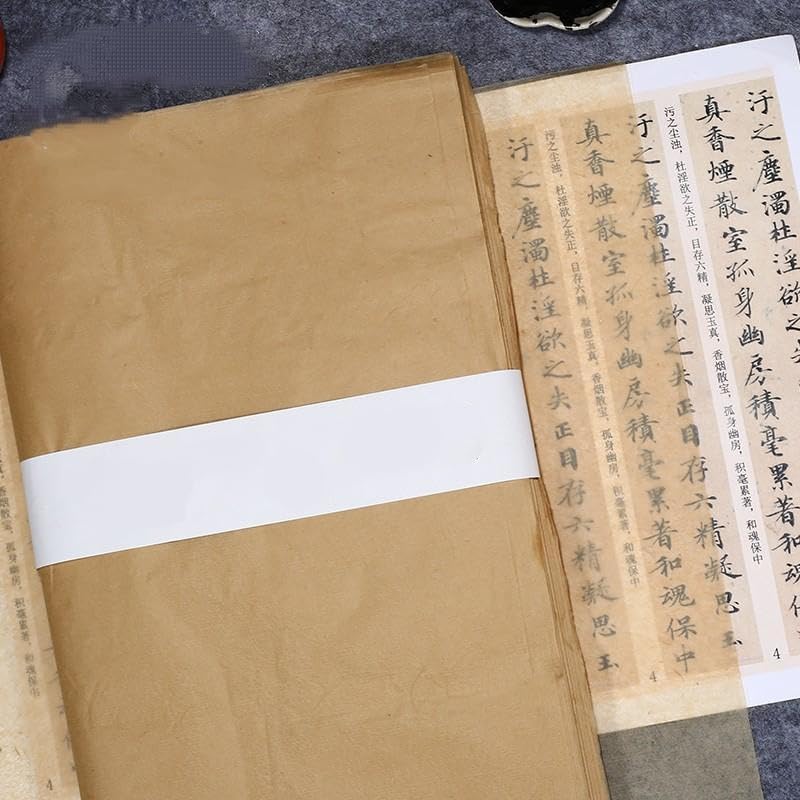 汙之塵濁杜淫欲之
真香煙散室孤身幽房積毫累著和魂保中
污之尘浊，杜淫欲之失正，目存六精，凝思玉真，香烟散宝，孤身幽房，积毫累著，和魂保中
4
汙之塵濁杜淫欲之失正目存六精凝思玉
真香煙散室孤身幽房積毫累著和魂保中
污之尘浊，杜淫欲之失正，目存六精，凝思玉真，香烟散宝，孤身幽房，积毫累著，和魂保中
4
汙之塵濁杜淫欲之失正目存六精凝思玉
香烟散宝，孤身幽房，积毫累著，和魂保中
4